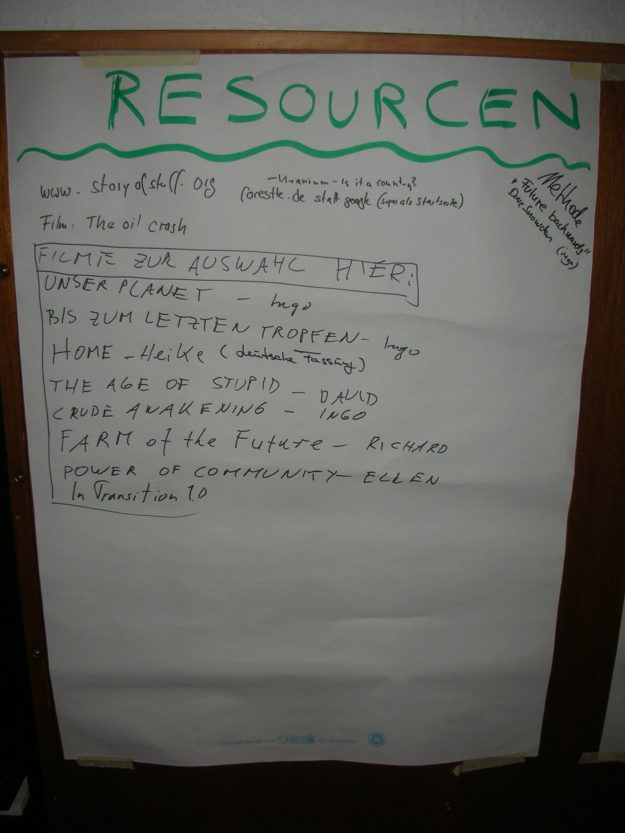 RESOURCEN
www.storyofstuff.org
- Uranium - Is it a country?
forestle.de statt google (super als Startseite)
Methode
"Future backwards"
Dave Snowden (ingo)
Film: The oil crash
FILME ZUR AUSWAHL HIER:
UNSER PLANET - Ingo
BIS ZUM LETZTEN TROPFEN - Ingo
HOME - Heike (deutsche Fassung)
THE AGE OF STUPID - DAVID
CRUDE AWAKENING - INGO
FARM of the Future - RICHARD
POWER OF COMMUNITY - ELLEN
In Transition 1.0